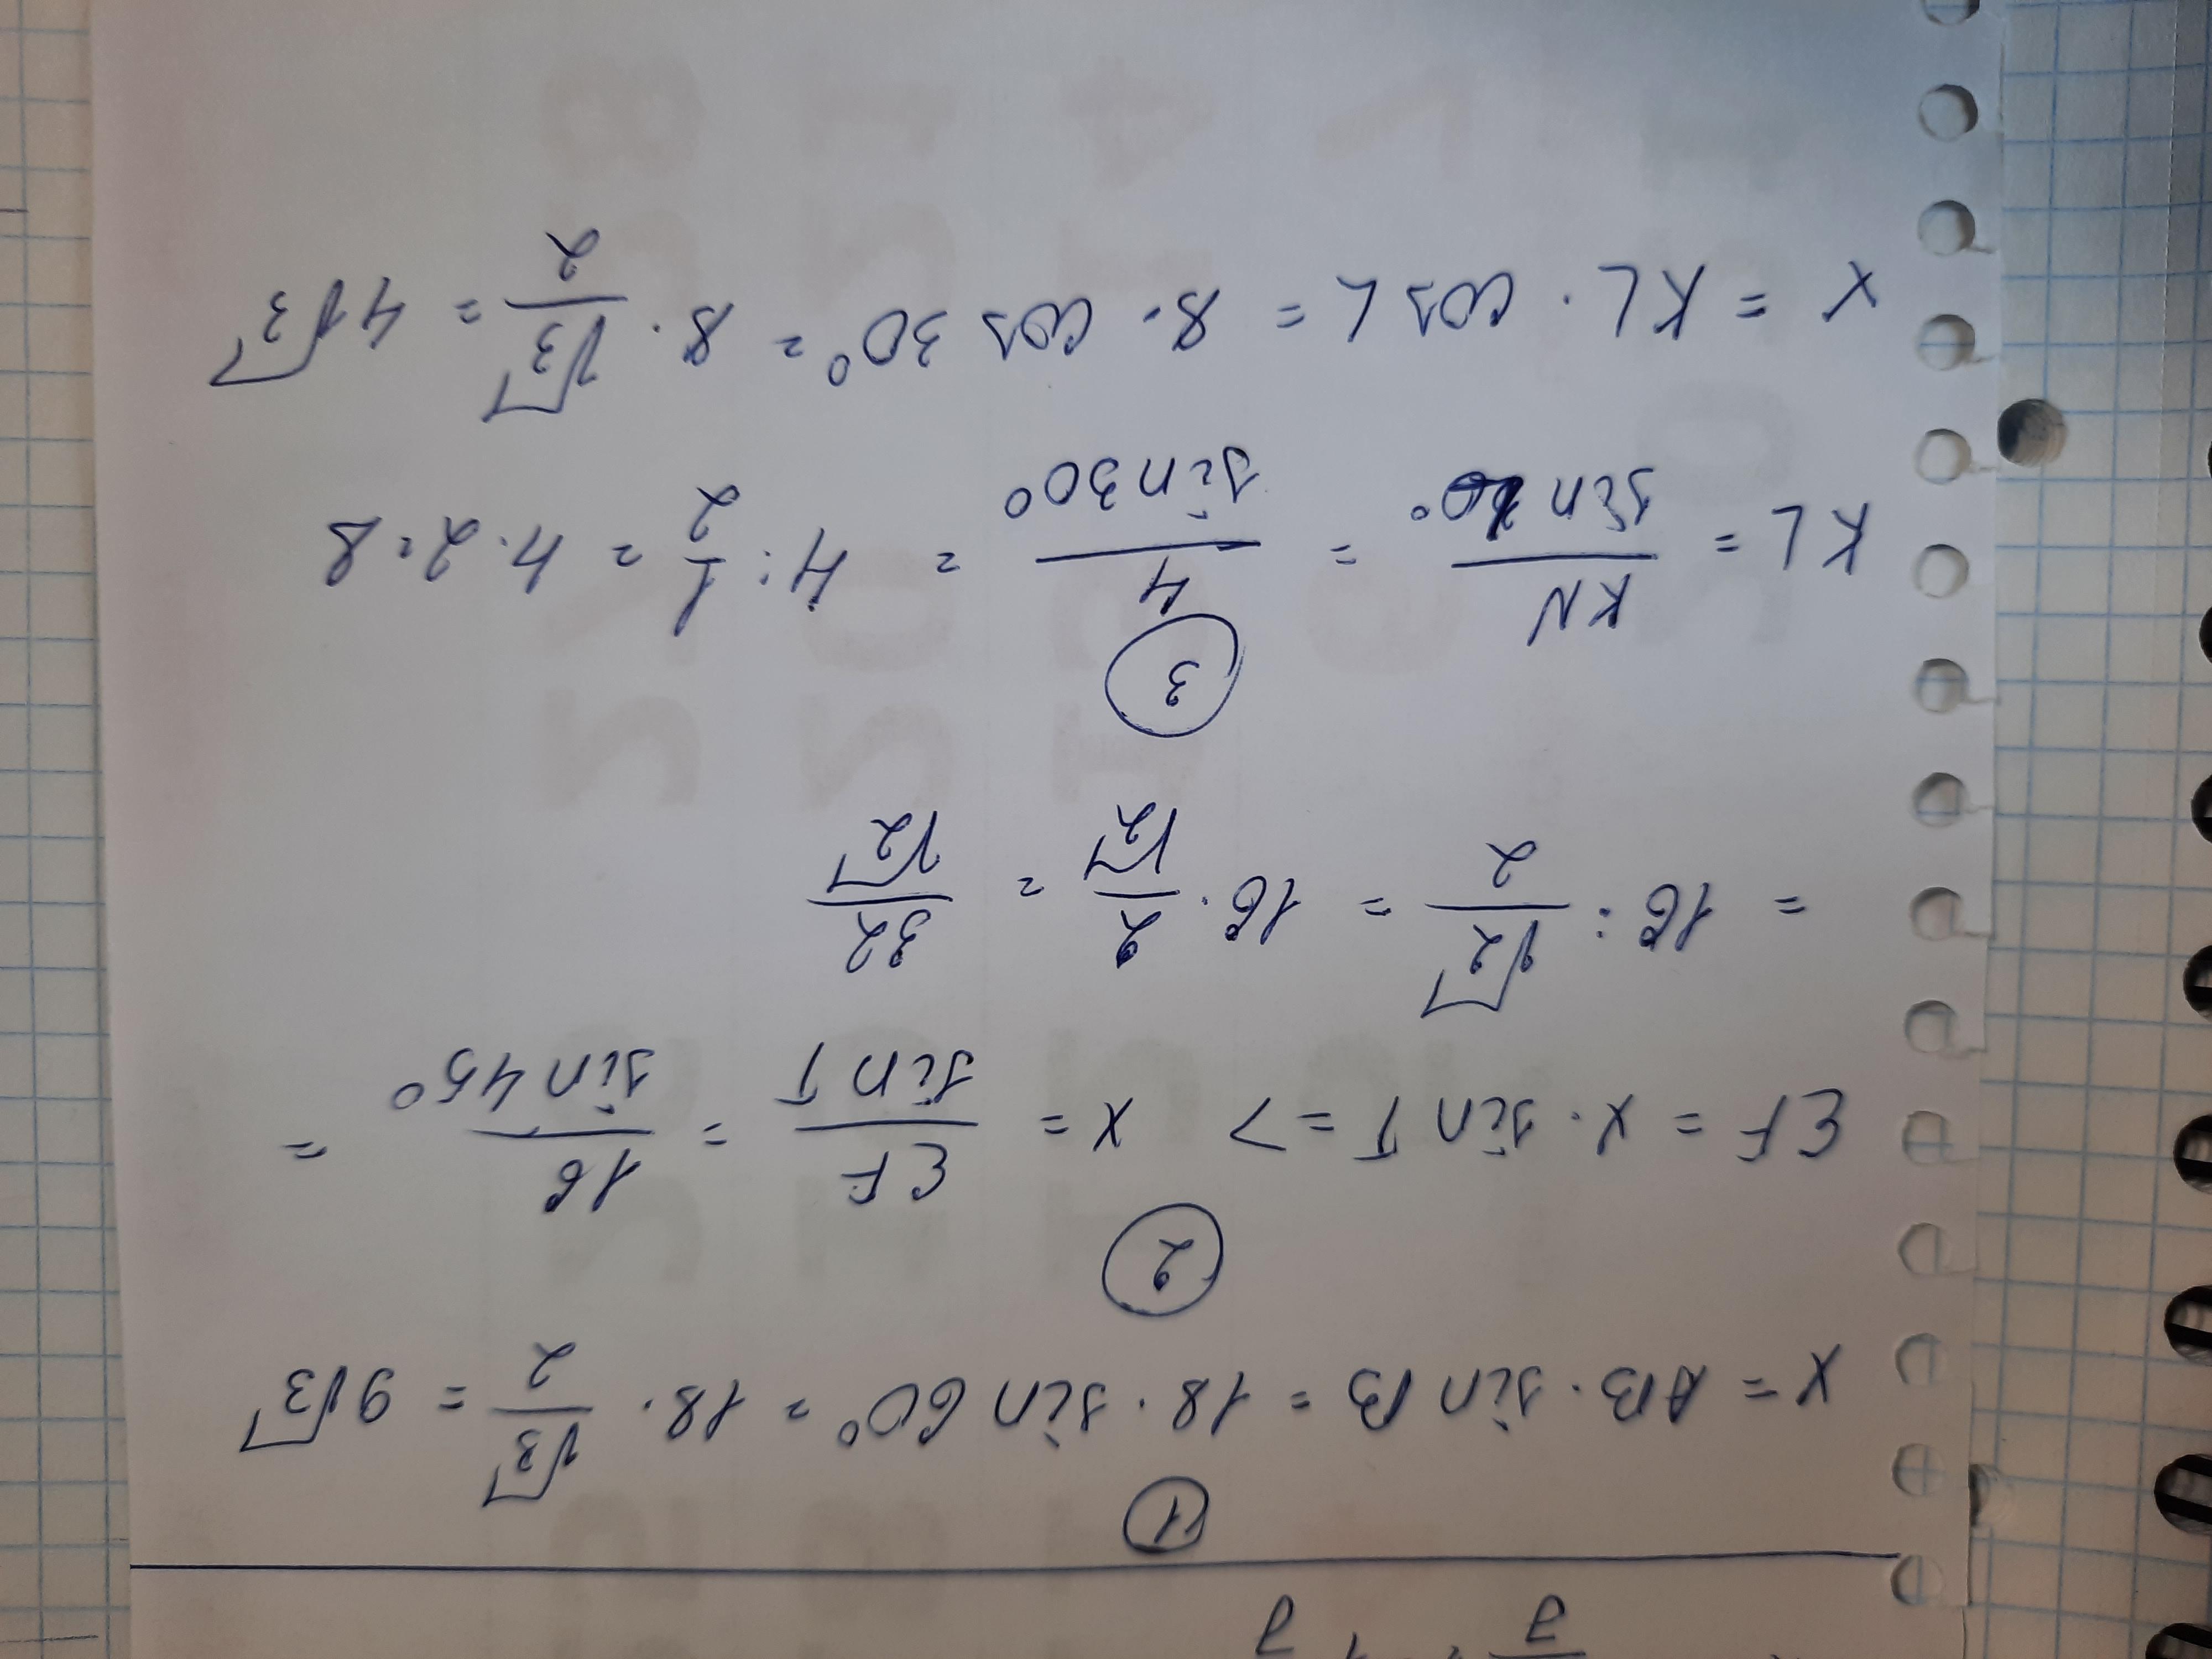 ①
x = AB · sin B = 18 · sin 60° = 18 · √3/2 = 9√3
②
EF = x · sin T => x = EF/sin T = 16/sin 45° =
= 16 : √2/2 = 16 · 2/√2 = 32/√2
③
KL = KN/sin = 4/sin 30° = 4 : 1/2 = 4 · 2 = 8
x = KL · cos L = 8 · cos 30° = 8 · √3/2 = 4√3